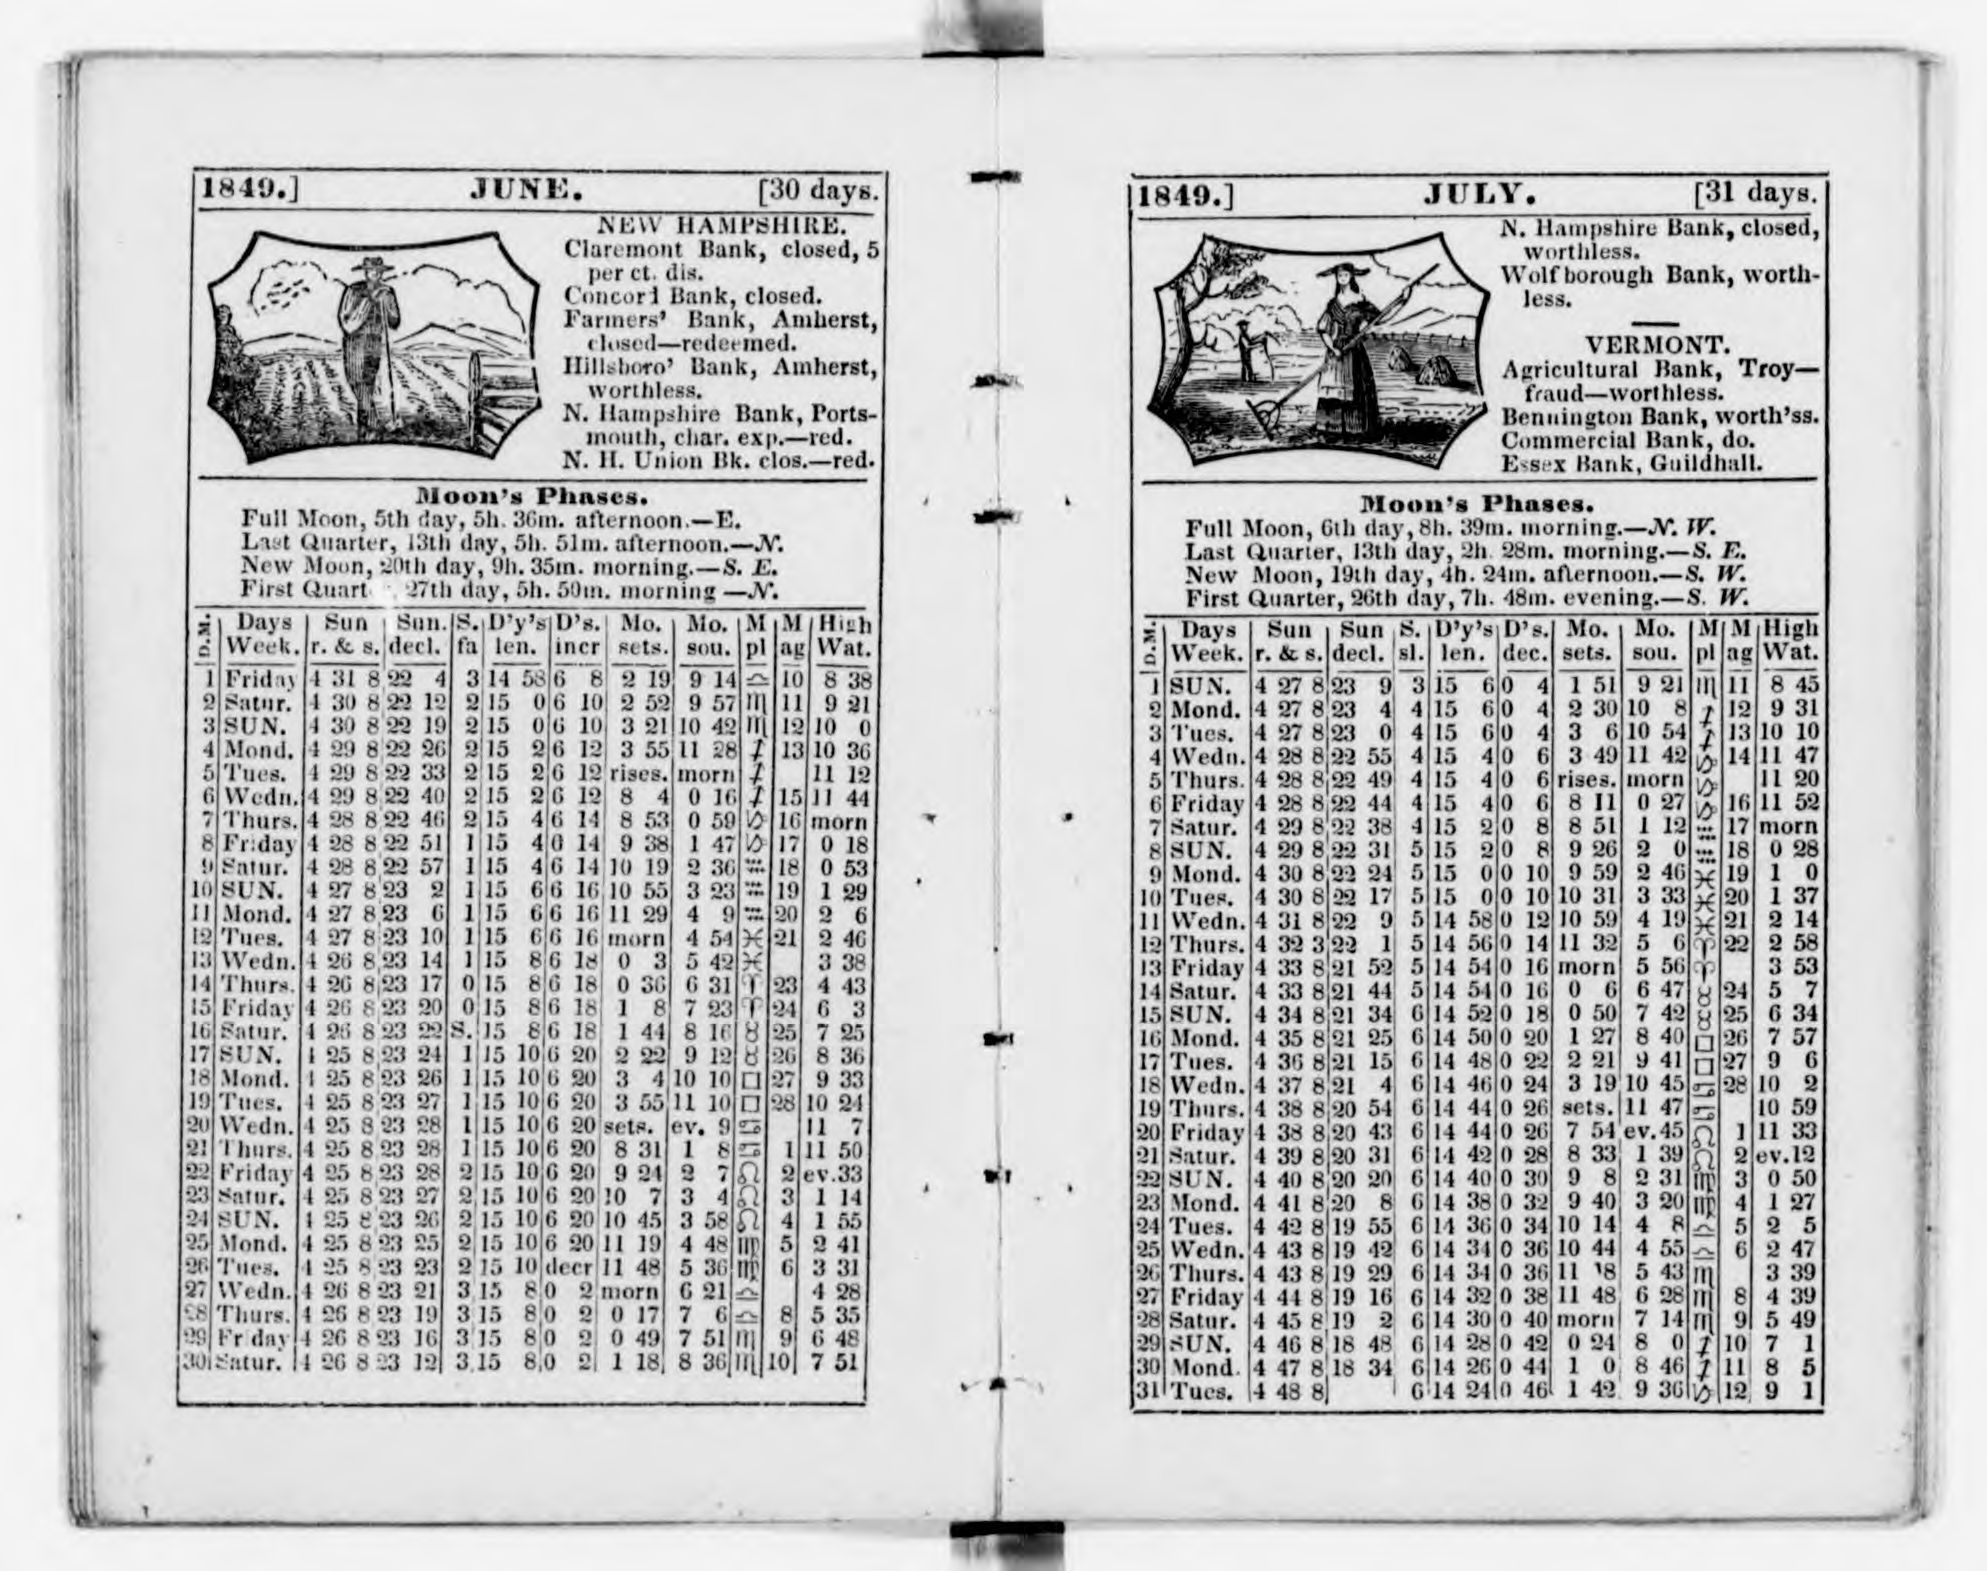 1849.] JUNE. [30 days.
NEW HAMPSHIRE.
Claremont Bank, closed, 5
per ct. dis.
Concord Bank, closed.
Farmers' Bank, Amherst,
closed—redeemed.
Hillsboro' Bank, Amherst,
worthless.
N. Hampshire Bank, Ports-
mouth, char. exp.—red.
N. H. Union Bk. clos.—red.
Moon's Phases.
Full Moon, 5th day, 5h. 36m. afternoon.—E.
Last Quarter, 13th day, 5h. 51m. afternoon.—N.
New Moon, 20th day, 9h. 35m. morning.—S. E.
First Quart 27th day, 5h. 50m. morning—N.
D.M. Days Sun Sun. S. D'y's D's. Mo. Mo. M M High
Week. r. & s. decl. fa len. incr sets. sou. pl ag Wat.
1 Friday 4 31 8 22 4 3 14 58 6 8 2 19 9 14 ♎ 10 8 38
2 Satur. 4 30 8 22 12 2 15 0 6 10 2 52 9 57 ♏ 11 9 21
3 SUN. 4 30 8 22 19 2 15 0 6 10 3 21 10 42 ♏ 12 10 0
4 Mond. 4 29 8 22 26 2 15 2 6 12 3 55 11 28 ♐ 13 10 36
5 Tues. 4 29 8 22 33 2 15 2 6 12 rises. morn ♐ 11 12
6 Wedn. 4 29 8 22 40 2 15 2 6 12 8 4 0 16 ♐ 15 11 44
7 Thurs. 4 28 8 22 46 2 15 4 6 14 8 53 0 59 ♑ 16 morn
8 Friday 4 28 8 22 51 1 15 4 6 14 9 38 1 47 ♑ 17 0 18
9 Satur. 4 28 8 22 57 1 15 4 6 14 10 19 2 36 ♒ 18 0 53
10 SUN. 4 27 8 23 2 1 15 6 6 16 10 55 3 23 ♒ 19 1 29
11 Mond. 4 27 8 23 6 1 15 6 6 16 11 29 4 9 ♒ 20 2 6
12 Tues. 4 27 8 23 10 1 15 6 6 16 morn 4 54 ♓ 21 2 46
13 Wedn. 4 26 8 23 14 1 15 8 6 18 0 3 5 42 ♓ 3 38
14 Thurs. 4 26 8 23 17 0 15 8 6 18 0 36 6 31 ♈ 23 4 43
15 Friday 4 26 8 23 20 0 15 8 6 18 1 8 7 23 ♈ 24 6 3
16 Satur. 4 26 8 23 22 S. 15 8 6 18 1 44 8 16 ♉ 25 7 25
17 SUN. 4 25 8 23 24 1 15 10 6 20 2 22 9 12 ♉ 26 8 36
18 Mond. 4 25 8 23 26 1 15 10 6 20 3 4 10 10 □ 27 9 33
19 Tues. 4 25 8 23 27 1 15 10 6 20 3 55 11 10 □ 28 10 24
20 Wedn. 4 25 8 23 28 1 15 10 6 20 sets. ev. 9 ♋ 11 7
21 Thurs. 4 25 8 23 28 1 15 10 6 20 8 31 1 8 ♋ 1 11 50
22 Friday 4 25 8 23 28 2 15 10 6 20 9 24 2 7 ♌ 2 ev.33
23 Satur. 4 25 8 23 27 2 15 10 6 20 10 7 3 4 ♌ 3 1 14
24 SUN. 4 25 8 23 26 2 15 10 6 20 10 45 3 58 ♌ 4 1 55
25 Mond. 4 25 8 23 25 2 15 10 6 20 11 19 4 48 ♍ 5 2 41
26 Tues. 4 25 8 23 23 2 15 10 decr 11 48 5 36 ♍ 6 3 31
27 Wedn. 4 26 8 23 21 3 15 8 0 2 morn 6 21 ♎ 4 28
28 Thurs. 4 26 8 23 19 3 15 8 0 2 0 17 7 6 ♎ 8 5 35
29 Fr day 4 26 8 23 16 3 15 8 0 2 0 49 7 51 ♏ 9 6 48
30 Satur. 4 26 8 23 12 3 15 8 0 2 1 18 8 36 ♏ 10 7 51
1849.] JULY. [31 days.
N. Hampshire Bank, closed,
worthless.
Wolfborough Bank, worth-
less.
VERMONT.
Agricultural Bank, Troy—
fraud—worthless.
Bennington Bank, worth'ss.
Commercial Bank, do.
Essex Bank, Guildhall.
Moon's Phases.
Full Moon, 6th day, 8h. 39m. morning.—N. W.
Last Quarter, 13th day, 2h. 28m. morning.—S. E.
New Moon, 19th day, 4h. 24m. afternoon.—S. W.
First Quarter, 26th day, 7h. 48m. evening.—S. W.
D.M. Days Sun Sun S. D'y's D's. Mo. Mo. M M High
Week. r. & s. decl. sl. len. dec. sets. sou. pl ag Wat.
1 SUN. 4 27 8 23 9 3 15 6 0 4 1 51 9 21 ♏ 11 8 45
2 Mond. 4 27 8 23 4 4 15 6 0 4 2 30 10 8 ♐ 12 9 31
3 Tues. 4 27 8 23 0 4 15 6 0 4 3 6 10 54 ♐ 13 10 10
4 Wedn. 4 28 8 22 55 4 15 4 0 6 3 49 11 42 ♑ 14 11 47
5 Thurs. 4 28 8 22 49 4 15 4 0 6 rises. morn ♑ 11 20
6 Friday 4 28 8 22 44 4 15 4 0 6 8 11 0 27 ♑ 16 11 52
7 Satur. 4 29 8 22 38 4 15 2 0 8 8 51 1 12 ♒ 17 morn
8 SUN. 4 29 8 22 31 5 15 2 0 8 9 26 2 0 ♒ 18 0 28
9 Mond. 4 30 8 22 24 5 15 0 0 10 9 59 2 46 ♓ 19 1 0
10 Tues. 4 30 8 22 17 5 15 0 0 10 10 31 3 33 ♓ 20 1 37
11 Wedn. 4 31 8 22 9 5 14 58 0 12 10 59 4 19 ♓ 21 2 14
12 Thurs. 4 32 3 22 1 5 14 56 0 14 11 32 5 6 ♈ 22 2 58
13 Friday 4 33 8 21 52 5 14 54 0 16 morn 5 56 ♈ 3 53
14 Satur. 4 33 8 21 44 5 14 54 0 16 0 6 6 47 ♉ 24 5 7
15 SUN. 4 34 8 21 34 6 14 52 0 18 0 50 7 42 ♉ 25 6 34
16 Mond. 4 35 8 21 25 6 14 50 0 20 1 27 8 40 □ 26 7 57
17 Tues. 4 36 8 21 15 6 14 48 0 22 2 21 9 41 □ 27 9 6
18 Wedn. 4 37 8 21 4 6 14 46 0 24 3 19 10 45 ♋ 28 10 2
19 Thurs. 4 38 8 20 54 6 14 44 0 26 sets. 11 47 ♋ 10 59
20 Friday 4 38 8 20 43 6 14 44 0 26 7 54 ev.45 ♌ 1 11 33
21 Satur. 4 39 8 20 31 6 14 42 0 28 8 33 1 39 ♌ 2 ev.12
22 SUN. 4 40 8 20 20 6 14 40 0 30 9 8 2 31 ♍ 3 0 50
23 Mond. 4 41 8 20 8 6 14 38 0 32 9 40 3 20 ♍ 4 1 27
24 Tues. 4 42 8 19 55 6 14 36 0 34 10 14 4 8 ♎ 5 2 5
25 Wedn. 4 43 8 19 42 6 14 34 0 36 10 44 4 55 ♎ 6 2 47
26 Thurs. 4 43 8 19 29 6 14 34 0 36 11 8 5 43 ♏ 3 39
27 Friday 4 44 8 19 16 6 14 32 0 38 11 48 6 28 ♏ 8 4 39
28 Satur. 4 45 8 19 2 6 14 30 0 40 morn 7 14 ♏ 9 5 49
29 SUN. 4 46 8 18 48 6 14 28 0 42 0 24 8 0 ♐ 10 7 1
30 Mond. 4 47 8 18 34 6 14 26 0 44 1 0 8 46 ♐ 11 8 5
31 Tues. 4 48 8 6 14 24 0 46 1 42 9 36 ♑ 12 9 1